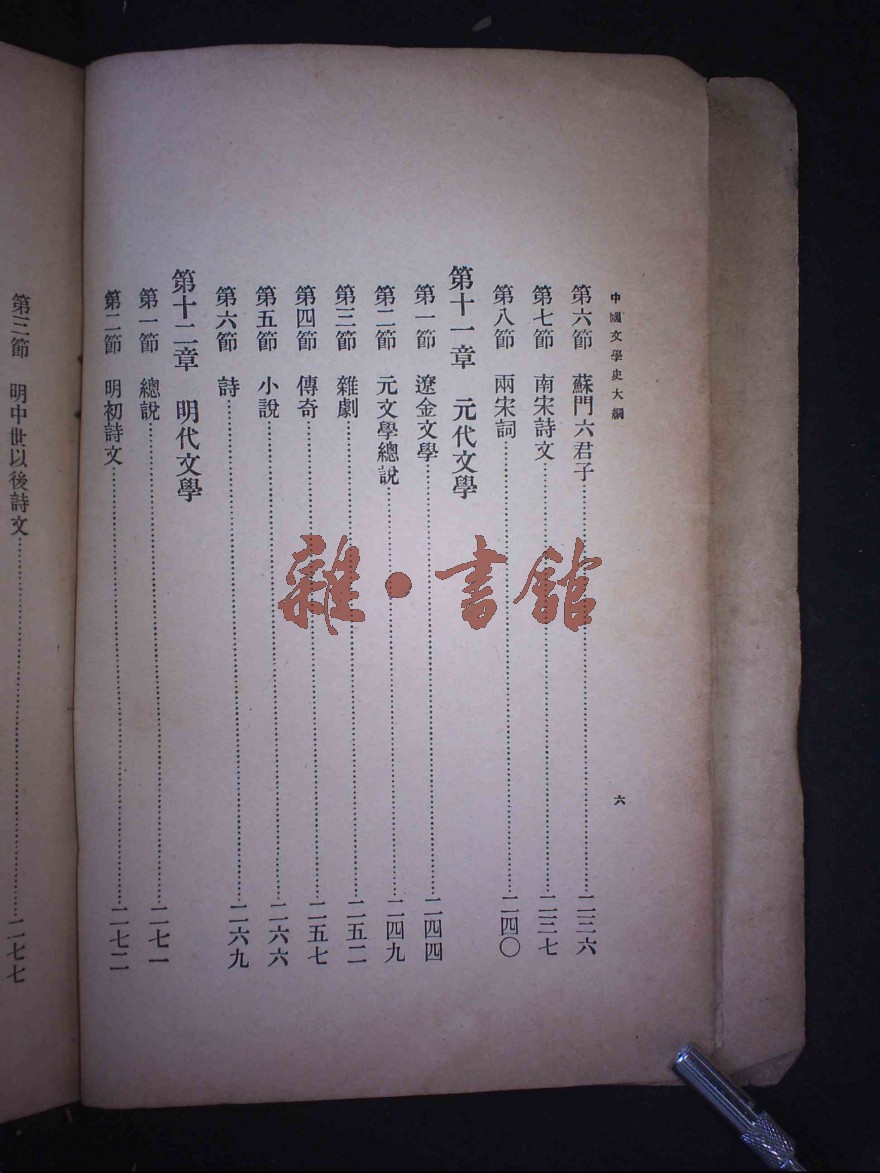 中國文學史大綱
六
第六節 蘇門六君子………二三六
第七節 南宋詩文………二三七
第八節 兩宋詞………二四〇
第十一章 元代文學
第一節 遼金文學………二四四
第二節 元文學總說………二四九
第三節 雜劇………二五二
第四節 傳奇………二五七
第五節 小說………二六六
第六節 詩………二六九
第十二章 明代文學
第一節 總說………二七一
第二節 明初詩文………二七二
第三節 明中世以後詩文………二七七
雜·書館